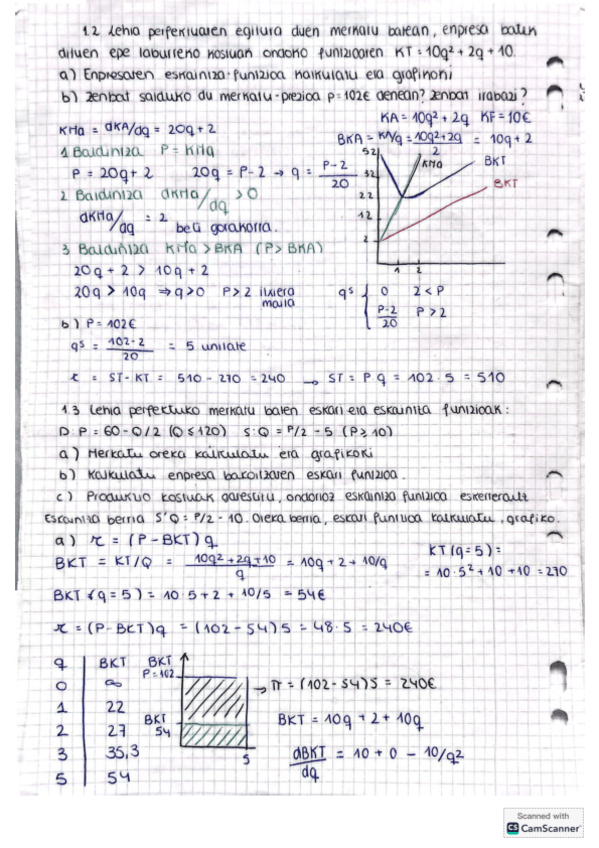 1.2 Lehia perfektuaren egitura duen merkatu batean, enpresa batek
dituen epe laburreko kostuak ondoko funtzioaren KT = 10q² + 2q + 10.
a) Enpresaren eskaintza-funtzioa kalkulatu eta grafikoki
b) Zenbat salduko du merkatu-prezioa p=102€ denean? Zenbat irabazi?
KMa = dKA/dq = 20q + 2
KA = 10q² + 2q KF = 10€
BKA = KA/q = 10q²+2q / 2 = 10q + 2
1 Baldintza P = KMa
P = 20q + 2 20q = P - 2 → q = P-2 / 20
2 Baldintza dKMa/dq > 0
dKMa/dq = 2 beti gorakorra.
3 Baldintza KMa > BKA (P > BKA)
20q + 2 > 10q + 2
20q > 10q ⇒ q > 0 P > 2 itxiera maila
52
32
22
12
2
1 2
KMa
BKT
BKT
qˢ { 0 2 < P
P-2 / 20 P > 2
b) P = 102€
qˢ = 102-2 / 20 = 5 unitate
π = ST - KT = 510 - 270 = 240 → ST = P q = 102 · 5 = 510
1.3 Lehia perfektuko merkatu baten eskari eta eskaintza funtzioak:
D: P = 60 - Q/2 (Q ≤ 120) S: Q = P/2 - 5 (P ≥ 10)
a) Merkatu oreka kalkulatu eta grafikoki
b) Kalkulatu enpresa bakoitzaren eskari funtzioa.
c) Produkzio kostuak garestitu, ondorioz eskaintza funtzioa eskerrerantz
Eskaintza berria S'Q = P/2 - 10. Oreka berria, eskari funtzioa kalkulatu, grafiko.
a) π = (P - BKT) q
BKT = KT/Q = 10q² + 2q + 10 / q = 10q + 2 + 10/q
KT (q=5):
= 10·5² + 10 + 10 = 270
BKT (q=5) = 10·5 + 2 + 10/5 = 54€
π = (P - BKT) q = (102 - 54) 5 = 48·5 = 240€
q BKT
0 ∞
1 22
2 27
3 35,3
5 54
BKT
P=102
BKT
54
5
→ π = (102 - 54) 5 = 240€
BKT = 10q + 2 + 10q
dBKT / dq = 10 + 0 - 10/q²
Scanned with
CS CamScanner